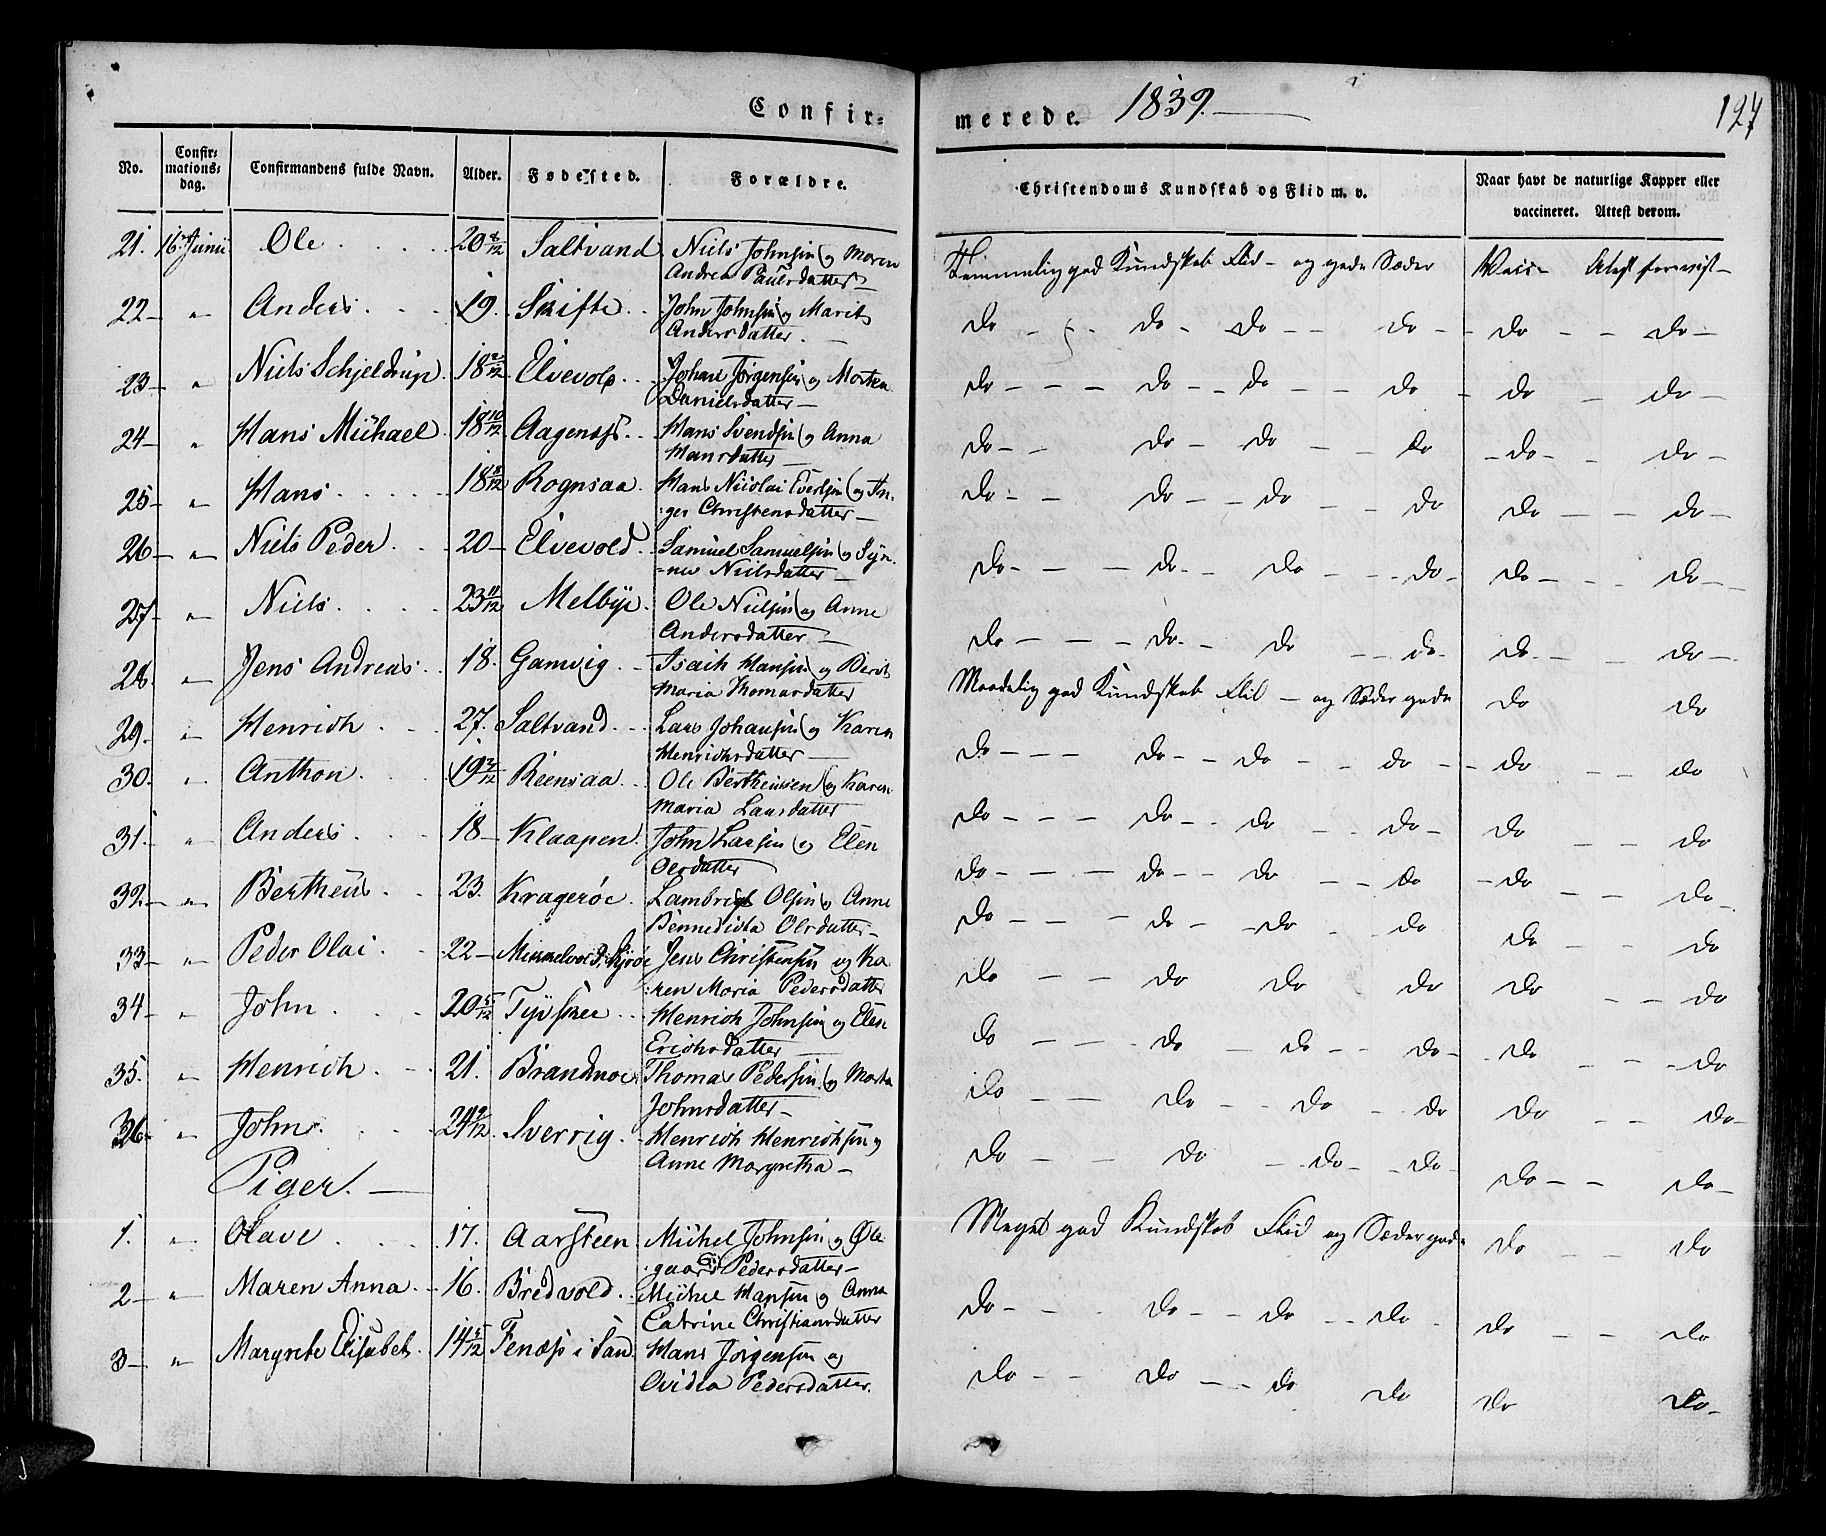 Confir-
merede. 1839.
127
No. Confir-mations-dag. Confirmandens fulde Navn. Alder. Fødested. Forældre.
Christendoms Kundskab og Flid m. v. Naar havt de naturlige Kopper eller vaccineret. Attest derom.
21. 16 Junii Ole 20 8/12 Saltvand Niels Johnsen og Maren
Andrea Paulsdatter Temmelig god Kundskab Flid - og gode Sæder Attest foreviist
22 " Anders 19. Skifte John Johnsen og Marit
Andersdatter do do do do do do
23 " Niels Schjeldrup 18 2/12 Elvevold Johan Jørgensen og Morten
Danielsdatter do do do do do do
24 " Hans Michael 18 10/12 Aagenæss Hans Svendsen og Anna
Hansdatter do do do do do do
25 " Hans 18 Rognsaa Hans Nicolai Evertsen og In-
ger Christensdatter do do do do do do
26 " Niels Peder 20 Elvevold Samuel Samuelsen og Syn-
nev Nielsdatter do do do do do do
27 " Niels 23 11/12 Melbye Ole Nielsen og Anne
Andersdatter do do do do do do
28 " Jens Andreas 18. Gamvig Isach Hansen og Berit
Maria Thomasdatter Maadelig god Kundskab Flid - og Sæder gode do do
29. " Henrich 27. Saltvand Lars Johansen og Karen
Henrichsdatter do do do do do do
30. " Anthon 19 3/12 Reensaa Ole Bertheussen og Karen
Maria Larsdatter do do do do do do
31. " Anders 18 Klaapen John Larsen og Elen
Oesdatter do do do do do do
32. " Bertheus 23. Kragerøe Lambrigt Olsen og Anne
Bennedicta Olsdatter do do do do do do
33 " Peder Olai 22 Jens Christensen og Ka-
ren Maria Pedersdatter do do do do do do
34 " John 20 5/12 Henrich Johnsen og Elen
Erichsdatter do do do do do do
35. " Henrich 21. Brandnoe Thomas Pedersen og Marta
Johnsdatter do do do do do do
36. " John 24 9/12 Sverrig Henrich Henrichsen og
Anne Margretha do do do do do do
Piger.
1. " Olave 17. Aarsteen Michel Johnsen og Ole-
gaard Pedersdatter Meget god Kundskab Flid og Sæder gode do do
2 " Maren Anna 16. Bredvold Michel Hansen og Anna
Catrine Christiansdatter do do do do do do
3 " Margrete Elisabet 14 5/12 Fenæss i San Hans Jørgensen og
Ovidia Pedersdatter. do do do do do do